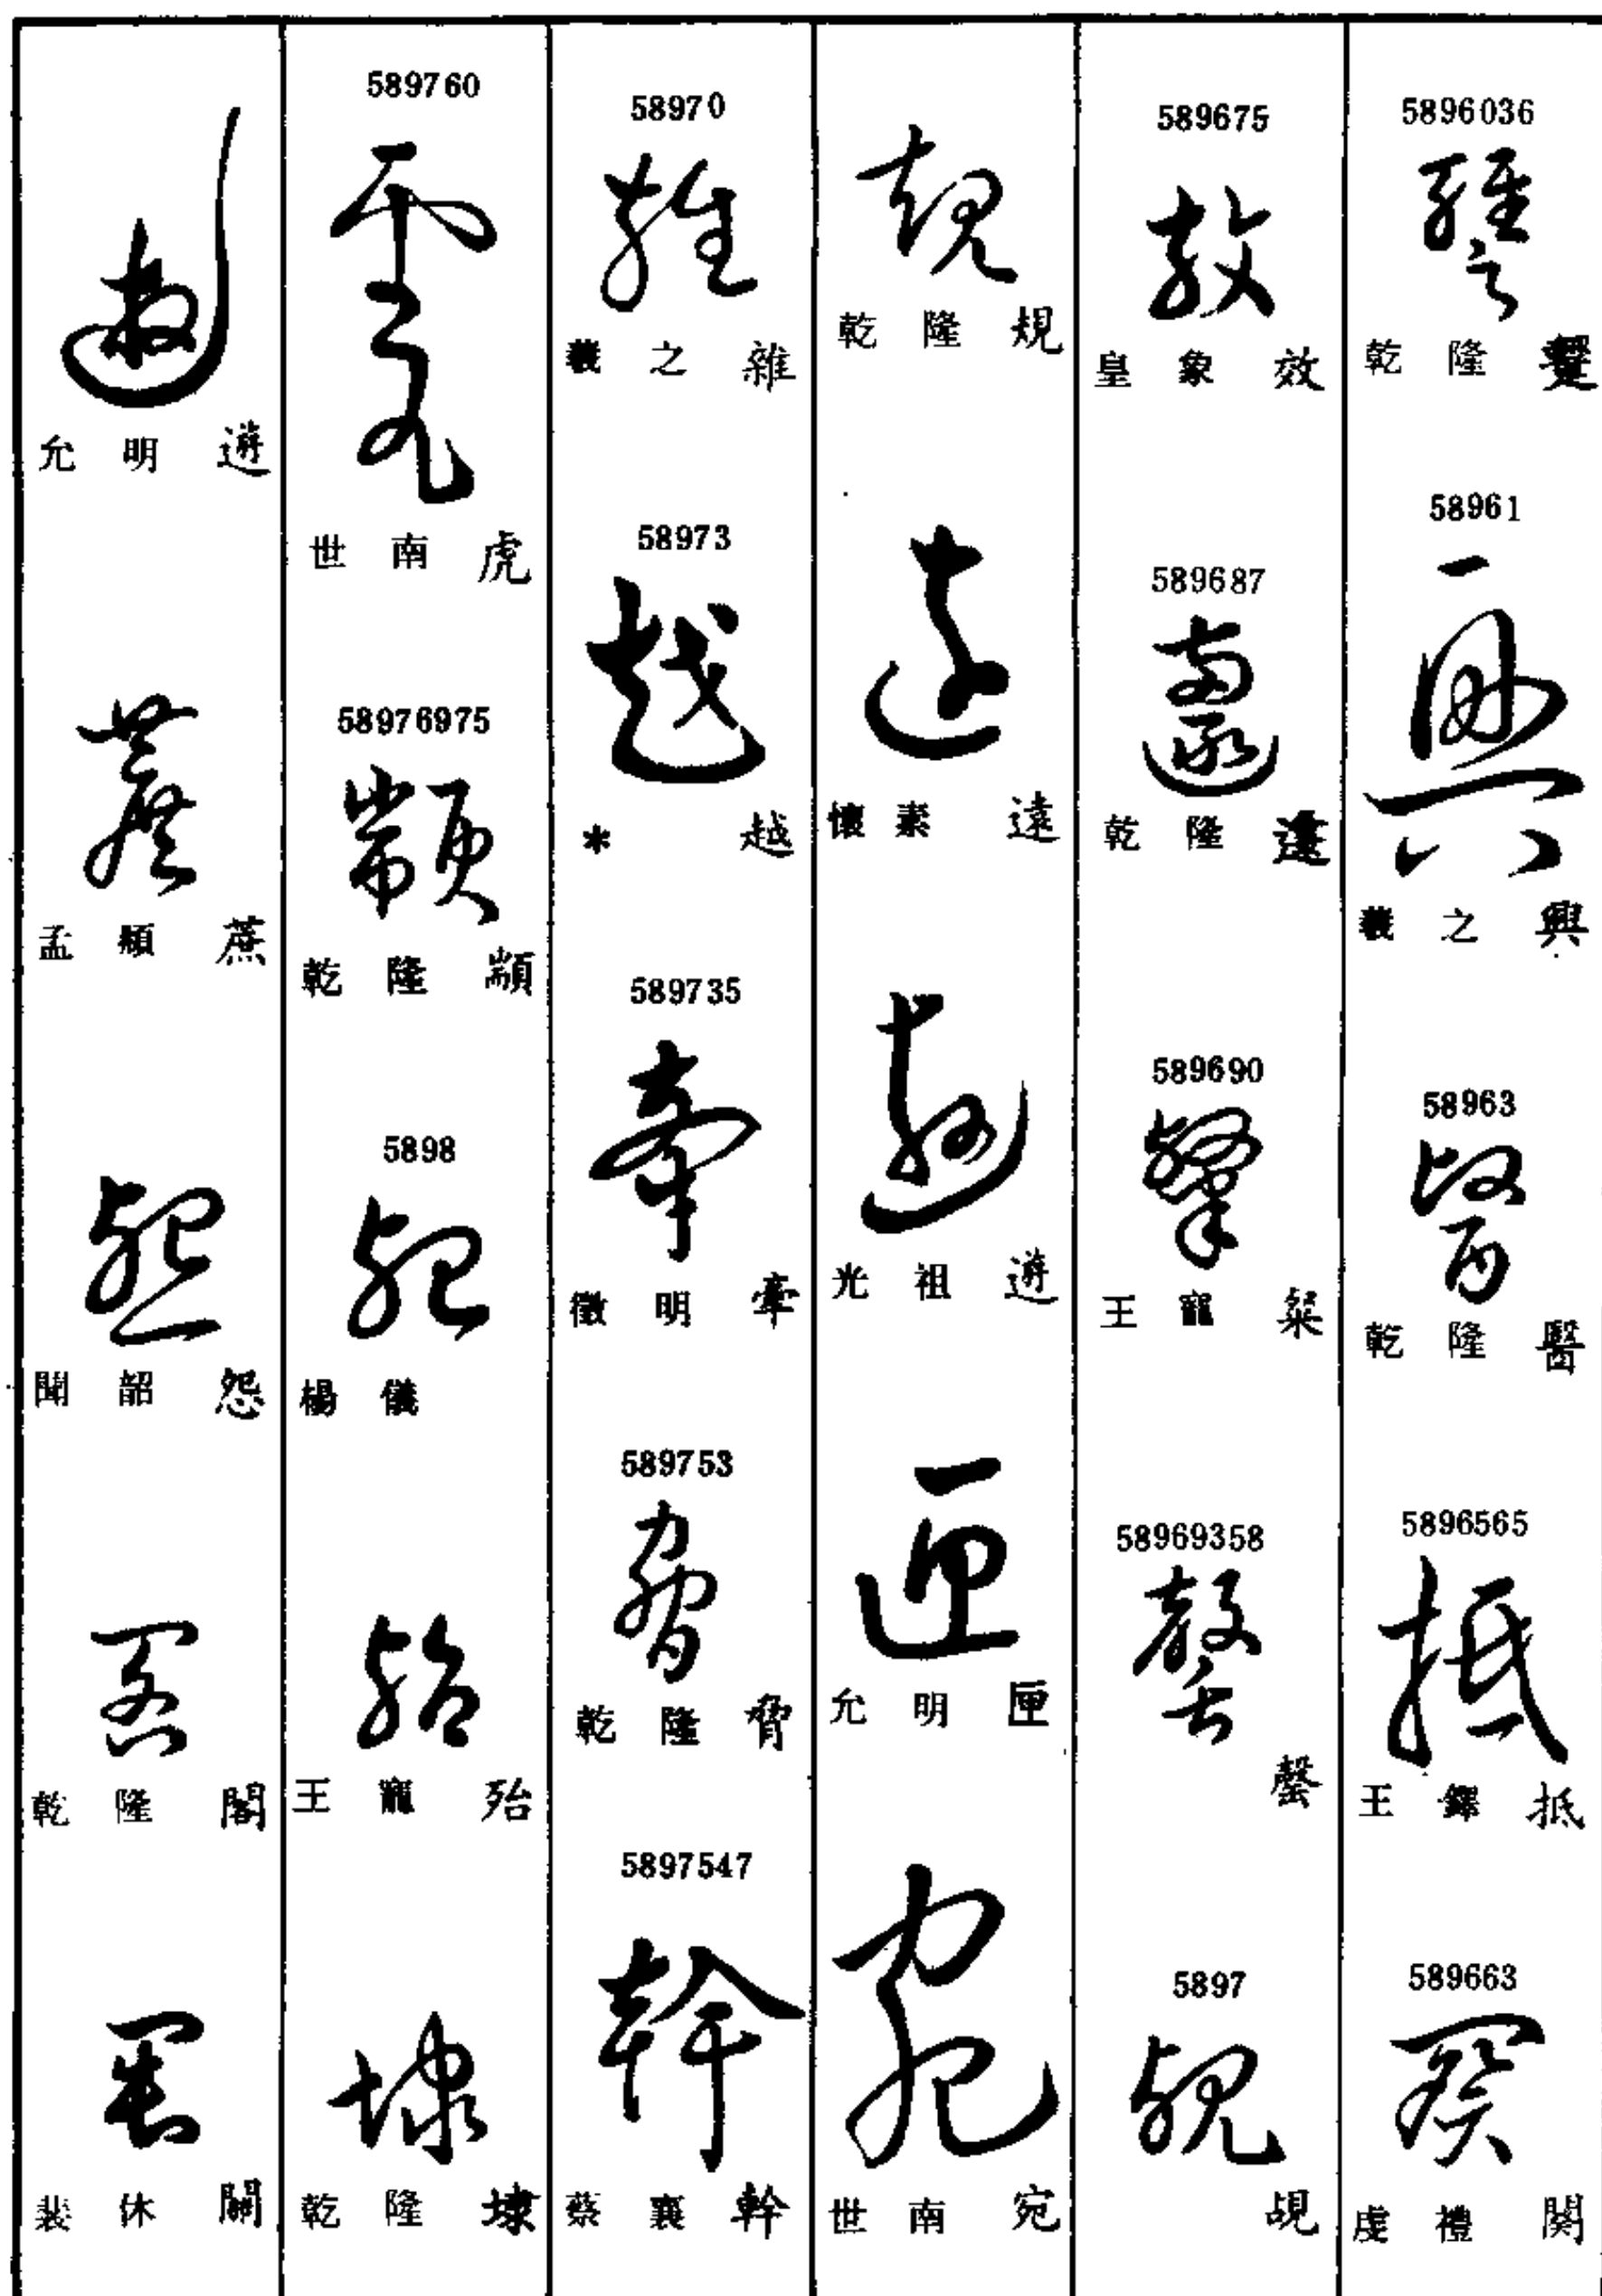 5896036
乾隆
58961
羲之 興
58963
乾隆 醫
5896565
王鐸 抵
589663
虔禮
589675
皇象 效
589687
乾隆 邊
589690
王寵 粲
58969358
罄
5897
覘
乾隆 規
懷素 遠
光祖 遊
允明 匣
世南 宛
58970
羲之 雜
58973
* 越
589735
徵明 牽
589753
乾隆 脅
5897547
蔡襄 幹
589760
世南 虎
58976975
乾隆 顓
5898
楊儀
王寵 殆
乾隆 埭
允明 遊
孟頫 蔗
聞韶 怨
乾隆 閣
裴休 關